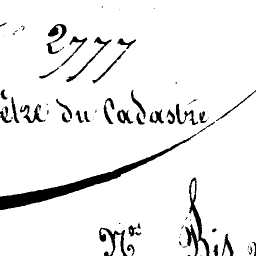 2777
ètre du Cadastre
Nos Bis